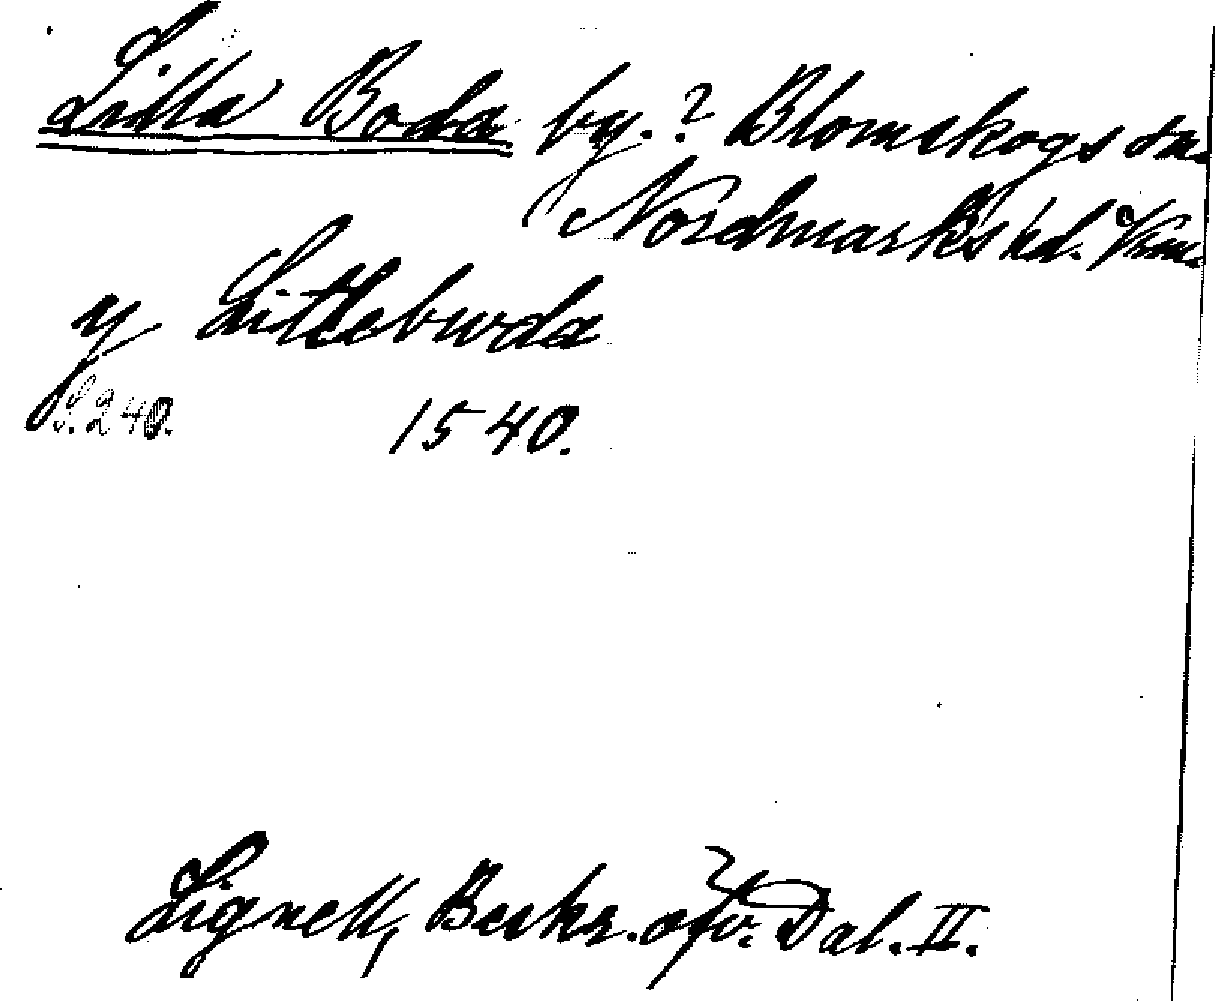 Lilla Boda by.? Blomskogs sn.
Nordmarks hd. Vrm.
y Litleburda
S. 240.
1540.
Lignell, Beskr. öfv. Dal. II.